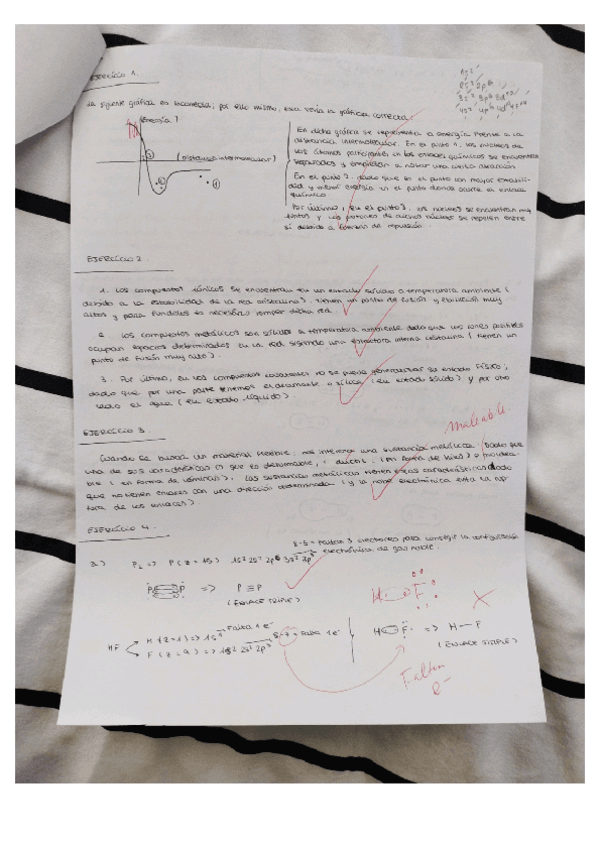 EJERCICIO 1.
1s²
2s² 2p⁶
3s² 3p⁶ 3d¹⁰
La siguiente gráfica es incorrecta; por ello mismo, esta sería la gráfica correcta
Energía
(Distancia intermolecular)
En dicha gráfica se representa la energía frente a la
distancia intermolecular. En el punto 1, los núcleos de
los átomos participantes en los enlaces químicos se encuentran
separados y empiezan a notar una cierta atracción
En el punto 2, dado que es el punto con mayor estabili-
dad y menor energía es el punto donde ocurre el enlace
químico.
Por último, en el punto 3, los núcleos se encuentran muy
juntos y los protones de ambos núcleos se repelen entre
sí debido a fuerzas de repulsión.
EJERCICIO 2.
1. Los compuestos iónicos se encuentran en un estado sólido a temperatura ambiente (
debido a la estabilidad de la red cristalina). Tienen un punto de fusión y ebullición muy
altos y para fundirlos es necesario romper dicha red.
2. Los compuestos metálicos son sólidos a temperatura ambiente dado que los iones positivos
ocupan espacios determinados en la red siguiendo una estructura interna cristalina (tienen un
punto de fusión muy alto).
3. Por último, en los compuestos covalentes no se puede generalizar su estado físico;
dado que por una parte tenemos el diamante o sílice (en estado sólido) y por otro
lado el agua (en estado líquido)
maleable.
EJERCICIO 3.
Cuando se busca un material flexible, nos interesa una sustancia metálica. Dado que
una de sus características es que es deformable, dúctil (en forma de hilos) o moldea-
ble (en forma de láminas). Las sustancias metálicas tienen estas características dado
que no tienen enlaces con una dirección determinada (y la nube electrónica evita la rup-
tura de los enlaces)
EJERCICIO 4.
8-5 = Faltan 3 electrones para conseguir la configuración
electrónica de gas noble.
a) P₂ => P (Z=15) 1s² 2s² 2p⁶ 3s² 3p³
P P => P ≡ P
(ENLACE TRIPLE)
H F
HF H (Z=1) => 1s¹ Falta 1 e⁻
F (Z=9) => 1s² 2s² 2p⁵ 8-7 = Falta 1 e⁻
H F => H — F
(ENLACE SIMPLE)
Faltan
e⁻